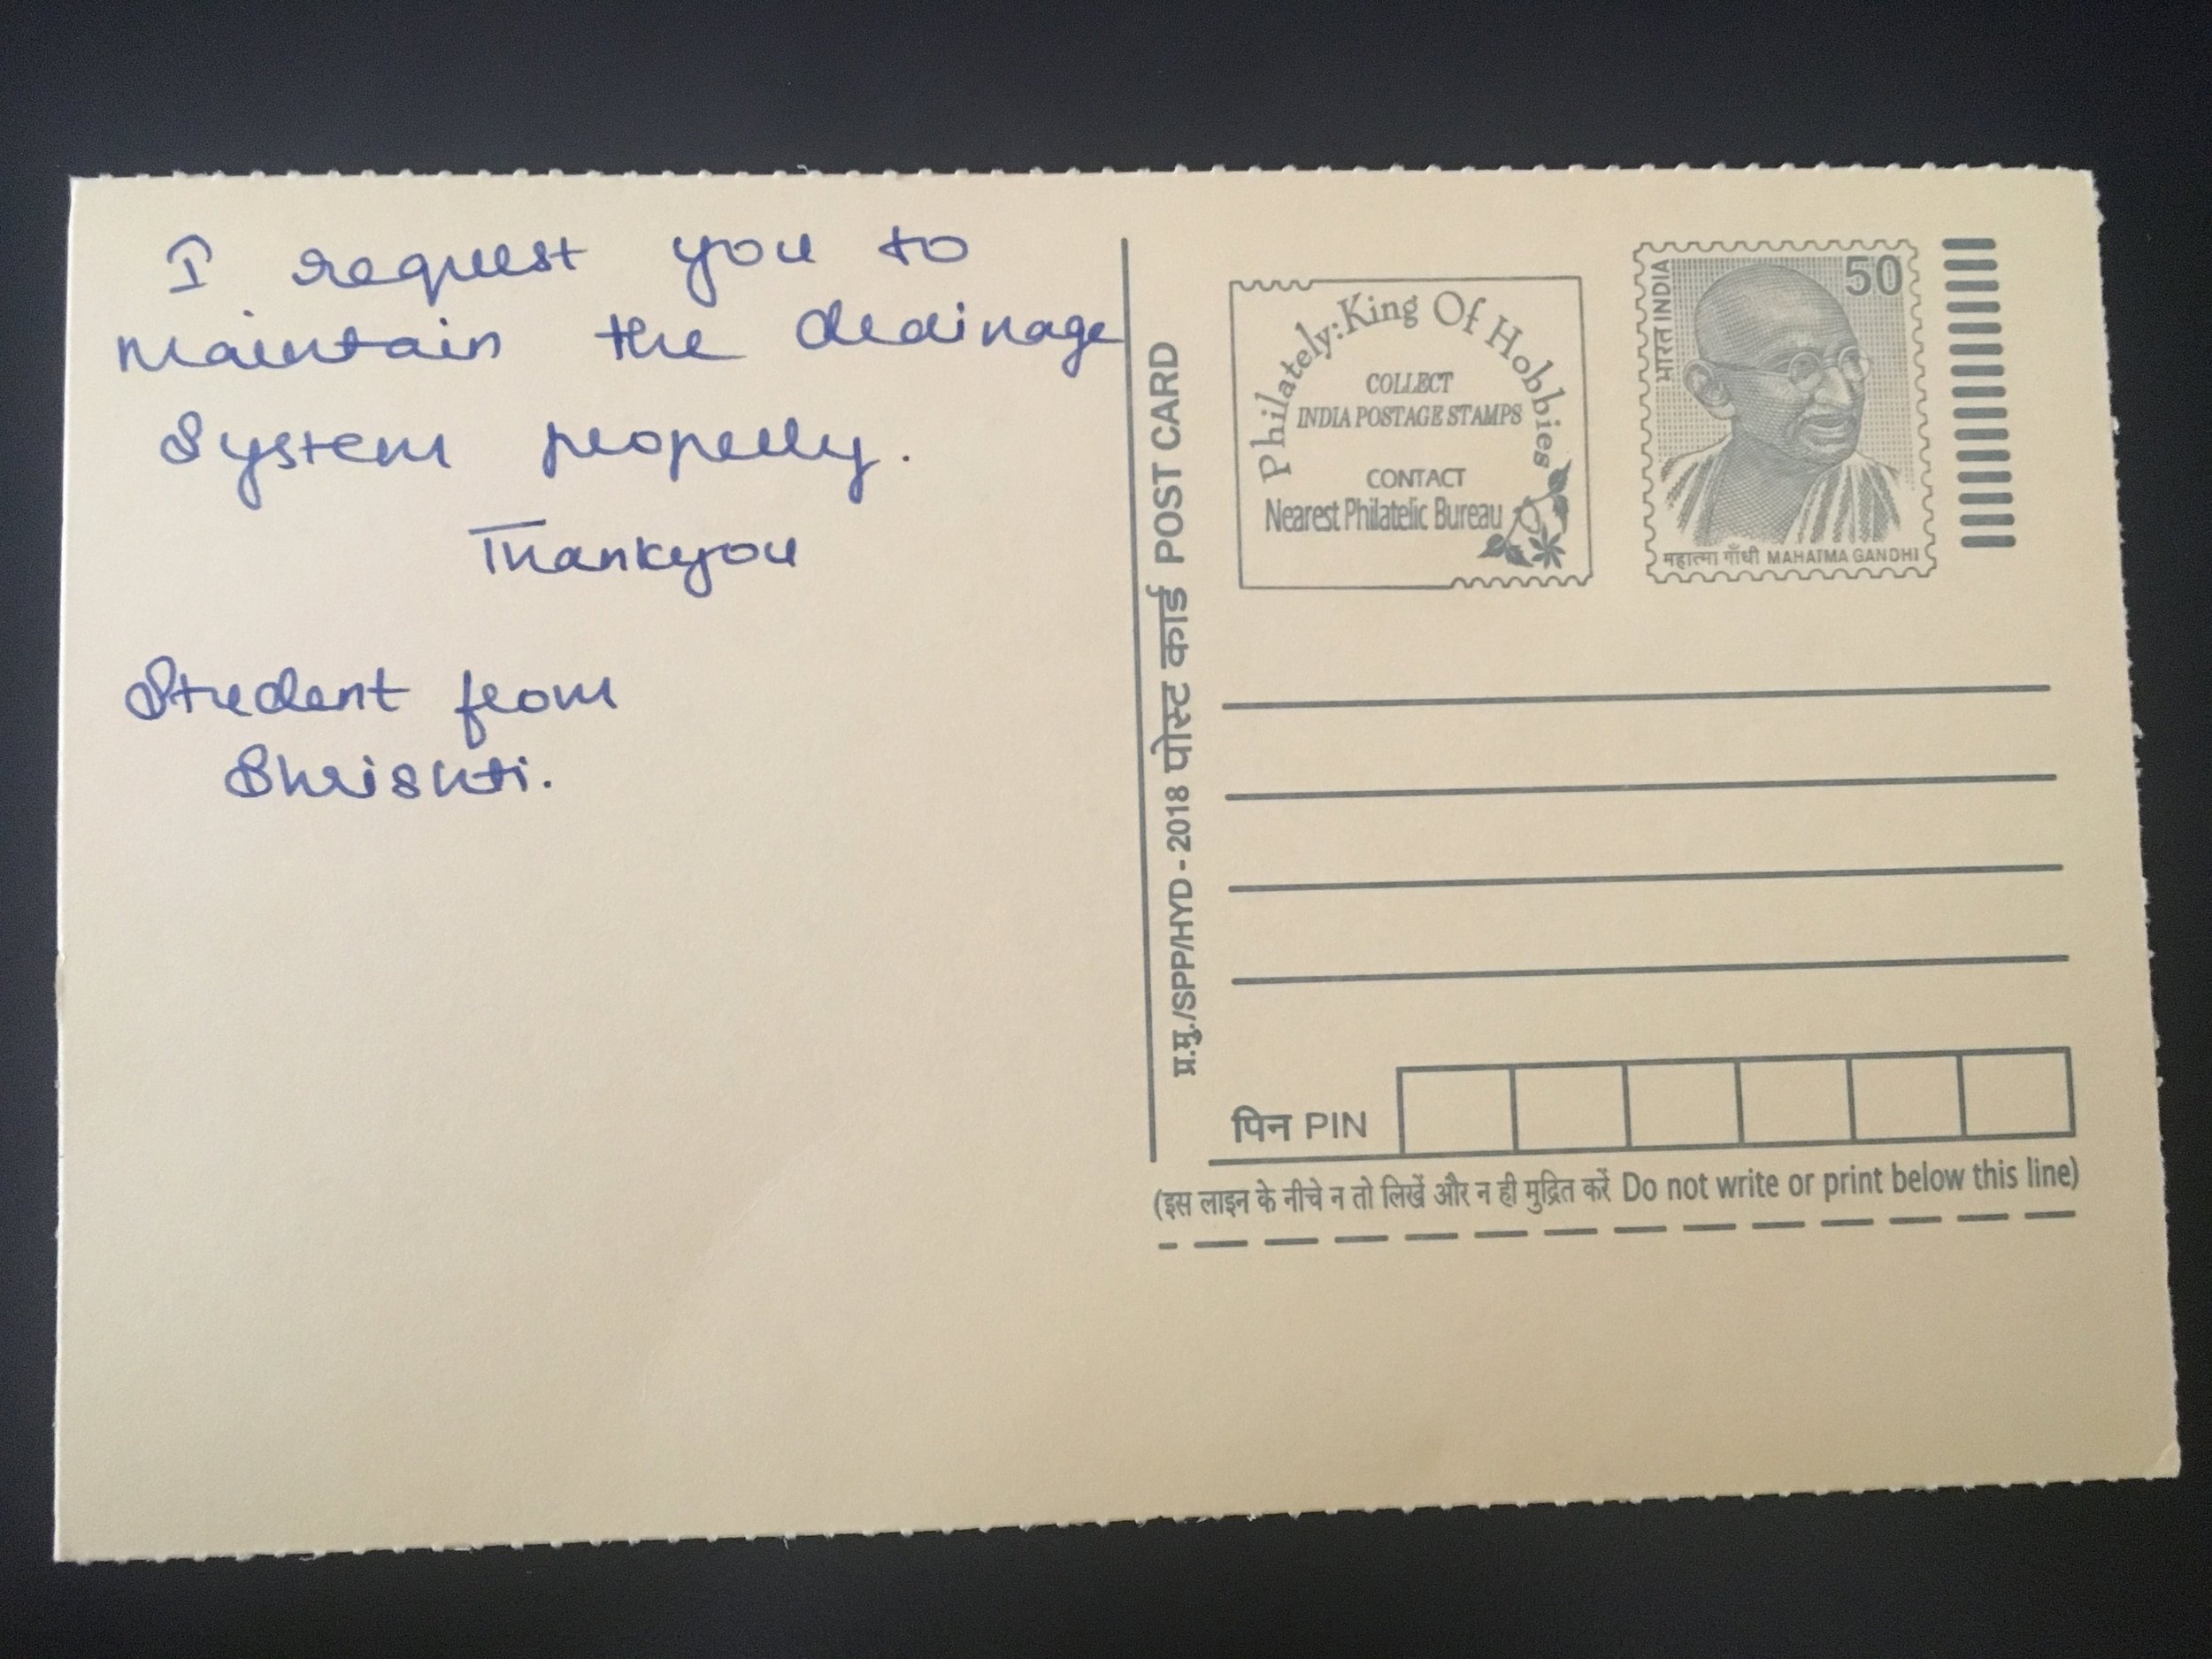 I request you to
maintain the drainage
System properly.
Thankyou
Student from
Shrishti.
प्र.मु./SPP/HYD - 2018 पोस्ट कार्ड POST CARD
Philately:King Of Hobbies
COLLECT
INDIA POSTAGE STAMPS
CONTACT
Nearest Philatelic Bureau
भारत INDIA
50
महात्मा गाँधी MAHATMA GANDHI
पिन PIN
(इस लाइन के नीचे न तो लिखें और न ही मुद्रित करें Do not write or print below this line)